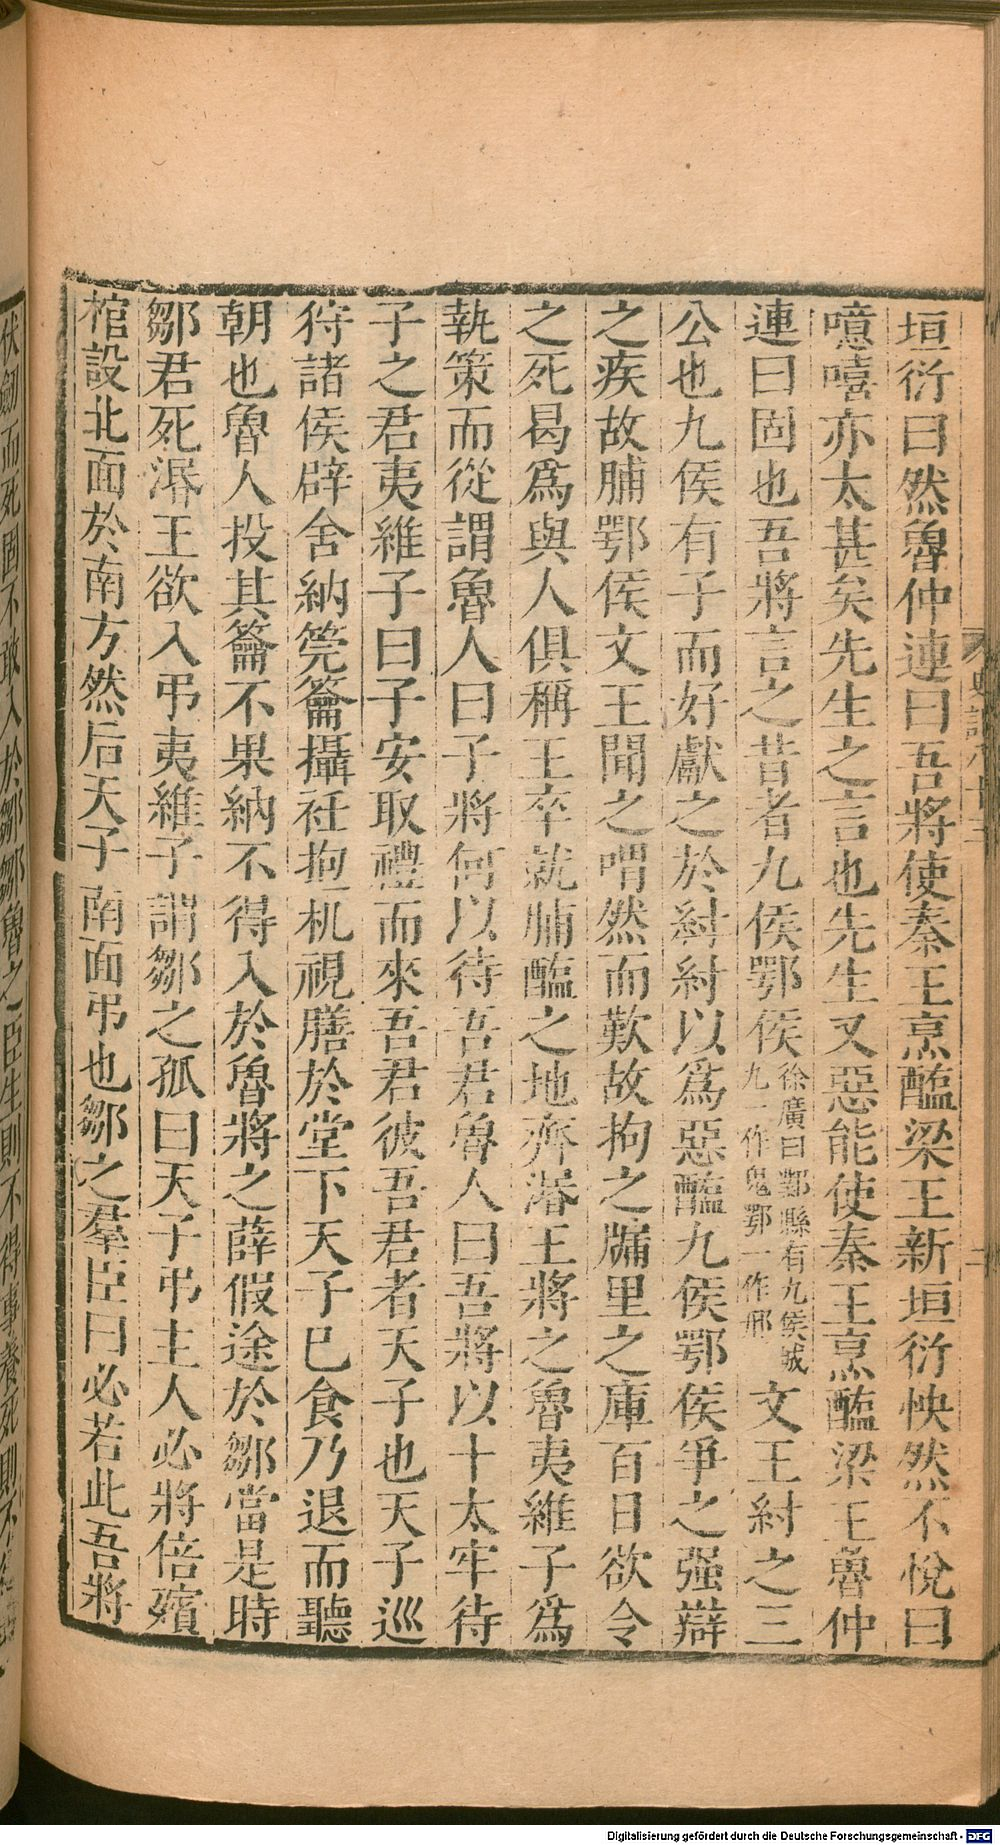 垣衍曰然魯仲連曰吾將使秦王烹醢梁王新垣衍怏然不悅曰
噫嘻亦太甚矣先生之言也先生又惡能使秦王烹醢梁王魯仲
連曰固也吾將言之昔者九侯鄂侯
徐廣曰鄴縣有九侯城
九一作鬼鄂一作邢
文王紂之三
公也九侯有子而好獻之於紂紂以爲惡醢九侯鄂侯爭之强辯
之疾故脯鄂侯文王聞之喟然而歎故拘之牖里之庫百日欲令
之死曷爲與人俱稱王卒就脯醢之地齊湣王將之魯夷維子爲
執策而從謂魯人曰子將何以待吾君魯人曰吾將以十太牢待
子之君夷維子曰子安取禮而來吾君彼吾君者天子也天子巡
狩諸侯辟舍納筦籥攝衽抱机視膳於堂下天子已食乃退而聽
朝也魯人投其籥不果納不得入於魯將之薛假途於鄒當是時
鄒君死湣王欲入弔夷維子謂鄒之孤曰天子弔主人必將倍殯
棺設北面於南方然后天子南面弔也鄒之羣臣曰必若此吾將
伏劒而死固不敢入於鄒鄒魯之臣生則不得事養死則不
史記八十三
Digitalisierung gefördert durch die Deutsche Forschungsgemeinschaft - DFG